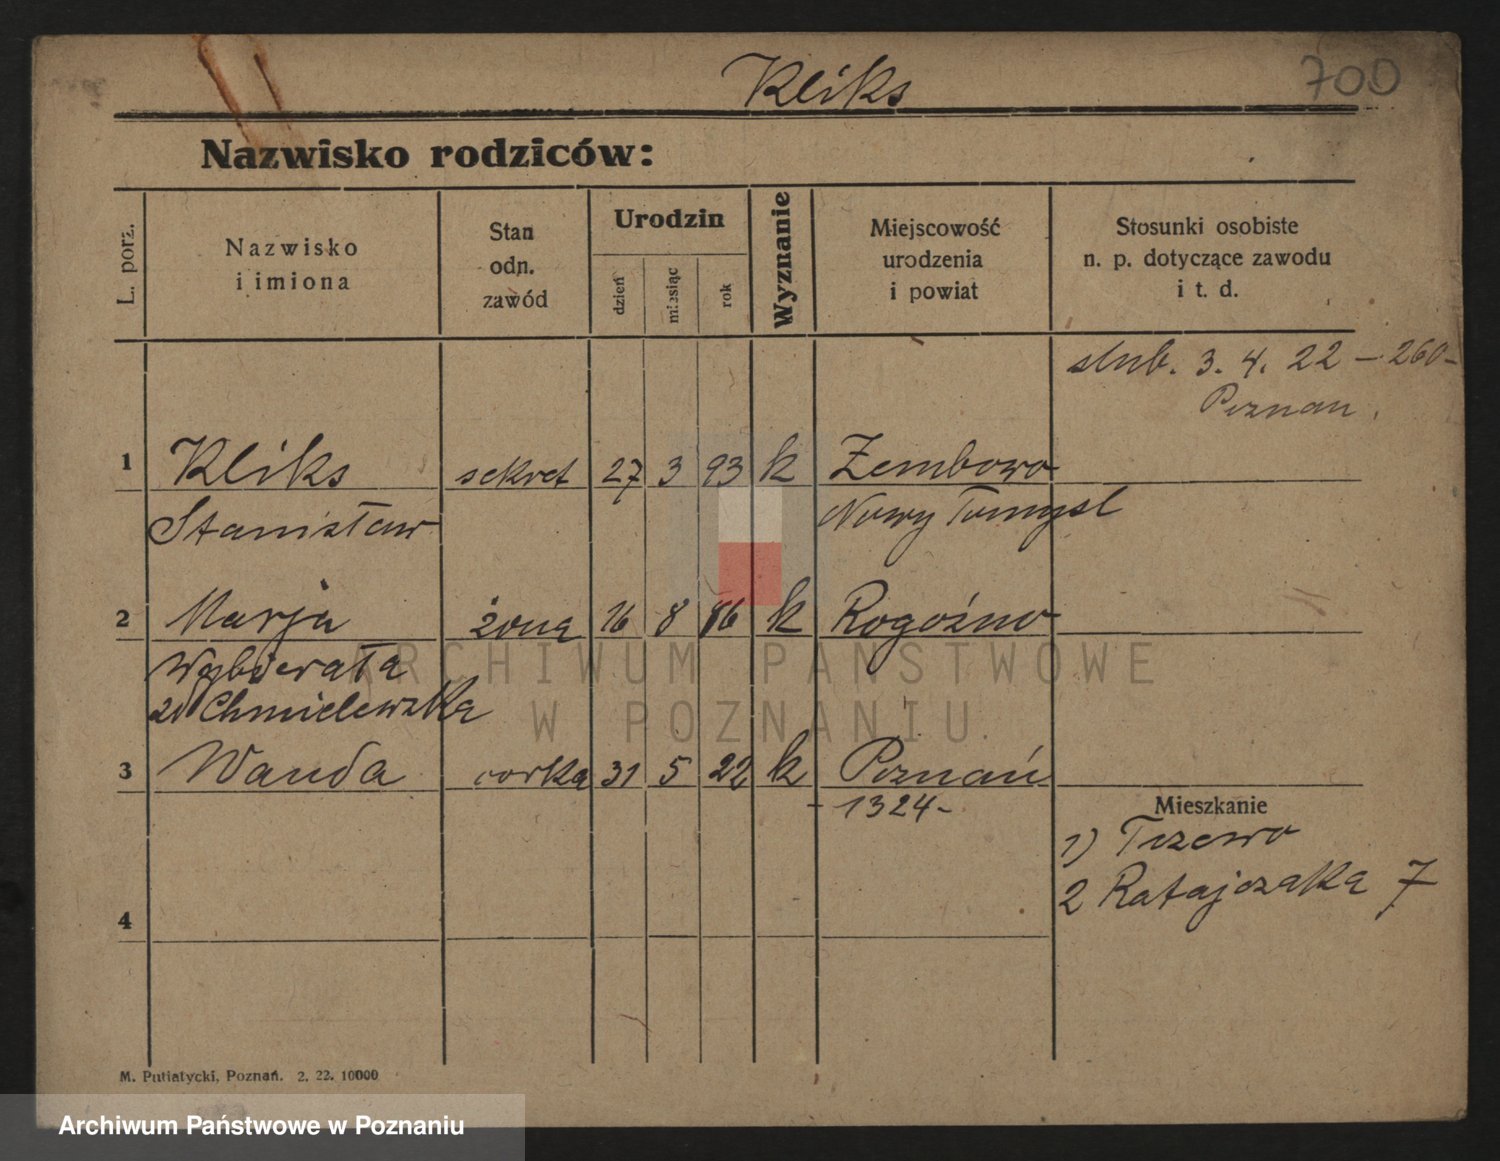 Kliks
700
Nazwisko rodziców:
L. porz.
Nazwisko
i imiona
Stan
odn.
zawód
Urodzin
dzień
miesiąc
rok
Wyznanie
Miejscowość
urodzenia
i powiat
Stosunki osobiste
n. p. dotyczące zawodu
i t. d.
slub. 3. 4. 22 – 260 –
Poznan.
1 Kliks sekret 27 3 93 k Zembowo
Stanisław Nowy Tomysl
2 Marja żona 16 8 86 k Rogoźno
Wybierała
Chmielewska
3 Wanda corka 31 5 22 k Poznań
- 1324 -
Mieszkanie
1) Tczewo
2 Ratajczaka 7
4
M. Putiatycki, Poznań. 2. 22. 10000
ARCHIWUM PAŃSTWOWE
W POZNANIU
Archiwum Państwowe w Poznaniu